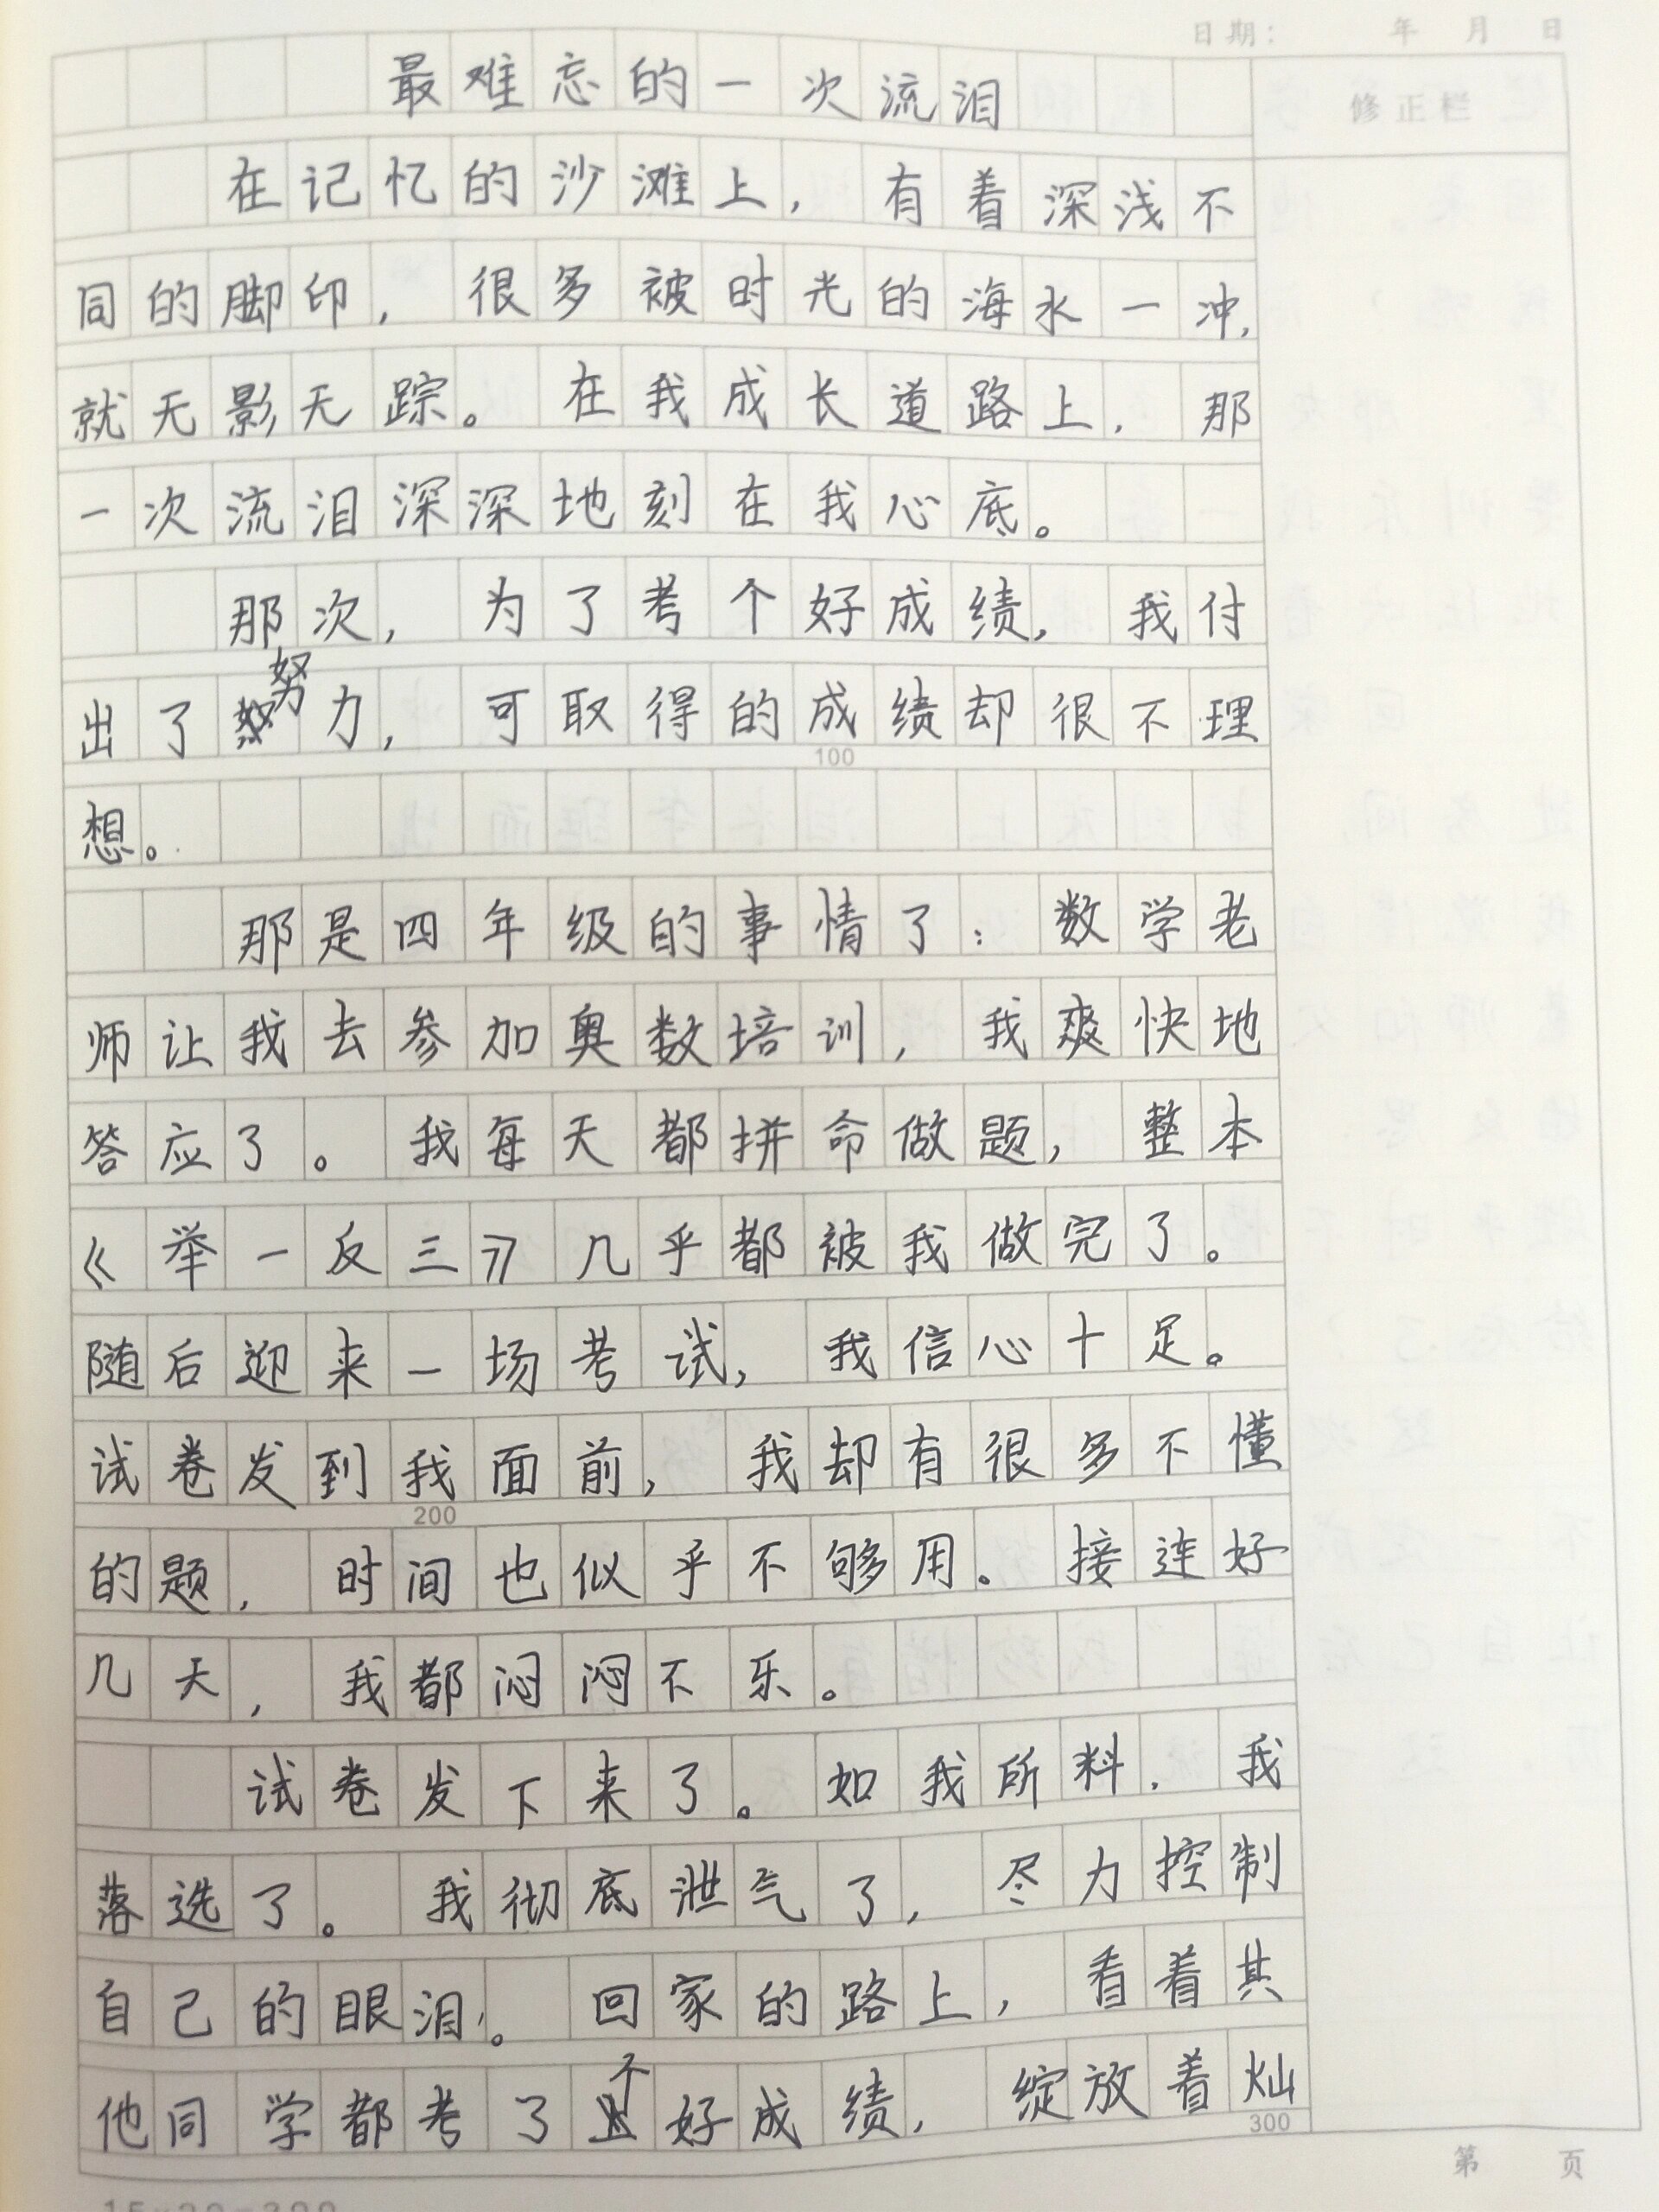 日期： 年 月 日
最难忘的一次流泪
修正栏
在记忆的沙滩上，有着深浅不
同的脚印，很多被时光的海水一冲，
就无影无踪。在我成长道路上，那
一次流泪深深地刻在我心底。
那次，为了考个好成绩，我付
出了努力，可取得的成绩却很不理
100
想。
那是四年级的事情了：数学老
师让我去参加奥数培训，我爽快地
答应了。我每天都拼命做题，整本
《举一反三》几乎都被我做完了。
随后迎来一场考试，我信心十足。
试卷发到我面前，我却有很多不懂
200
的题，时间也似乎不够用。接连好
几天，我都闷闷不乐。
试卷发下来了。如我所料，我
落选了。我彻底泄气了，尽力控制
自己的眼泪。回家的路上，看着其
他同学都考了个好成绩，绽放着灿
300
第 页
15×20=300